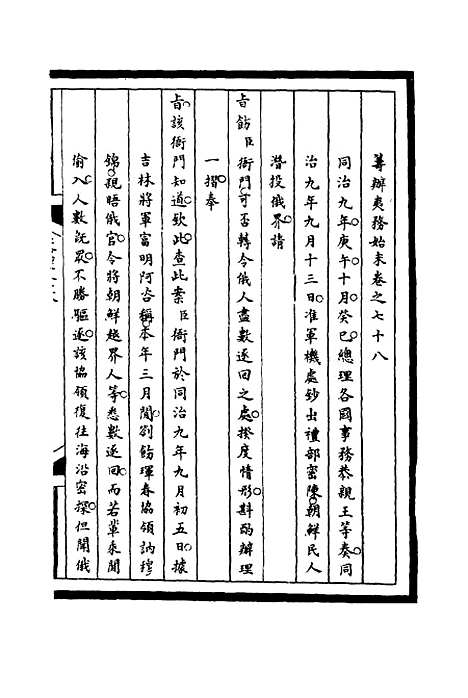 籌辦夷務始末卷之七十八
同治九年庚午十月癸巳總理各國事務恭親王等奏同
治九年九月十三日准軍機處鈔出禮部密陳朝鮮民人
潛投俄界請
旨飭臣衙門可否轉令俄人盡數逐回之處揆度情形斟酌辦理
一摺奉
旨該衙門知道欽此查此案臣衙門於同治九年九月初五日據
吉林將軍富明阿咨稱本年三月間劄飭琿春協領訥穆
錦親晤俄官令將朝鮮越界人等悉數逐回而若輩乘間
偷入人數既眾不勝驅逐該協領復往海沿密探但聞俄